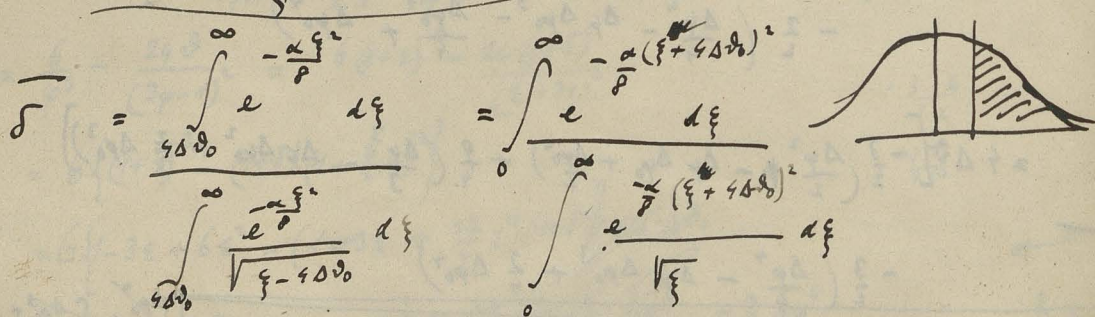 $\overline{\delta} = \dfrac{\int_{4\Delta\vartheta_0}^{\infty} e^{-\frac{\alpha\xi^2}{8}} d\xi}{\int_{4\Delta\vartheta_0}^{\infty} \frac{e^{-\frac{\alpha\xi^2}{8}}}{\sqrt{\xi - 4\Delta\vartheta_0}} d\xi} = \dfrac{\int_0^{\infty} e^{-\frac{\alpha}{8}(\xi + 4\Delta\vartheta_0)^2} d\xi}{\int_0^{\infty} \frac{e^{-\frac{\alpha}{8}(\xi + 4\Delta\vartheta_0)^2}}{\sqrt{\xi}} d\xi}$